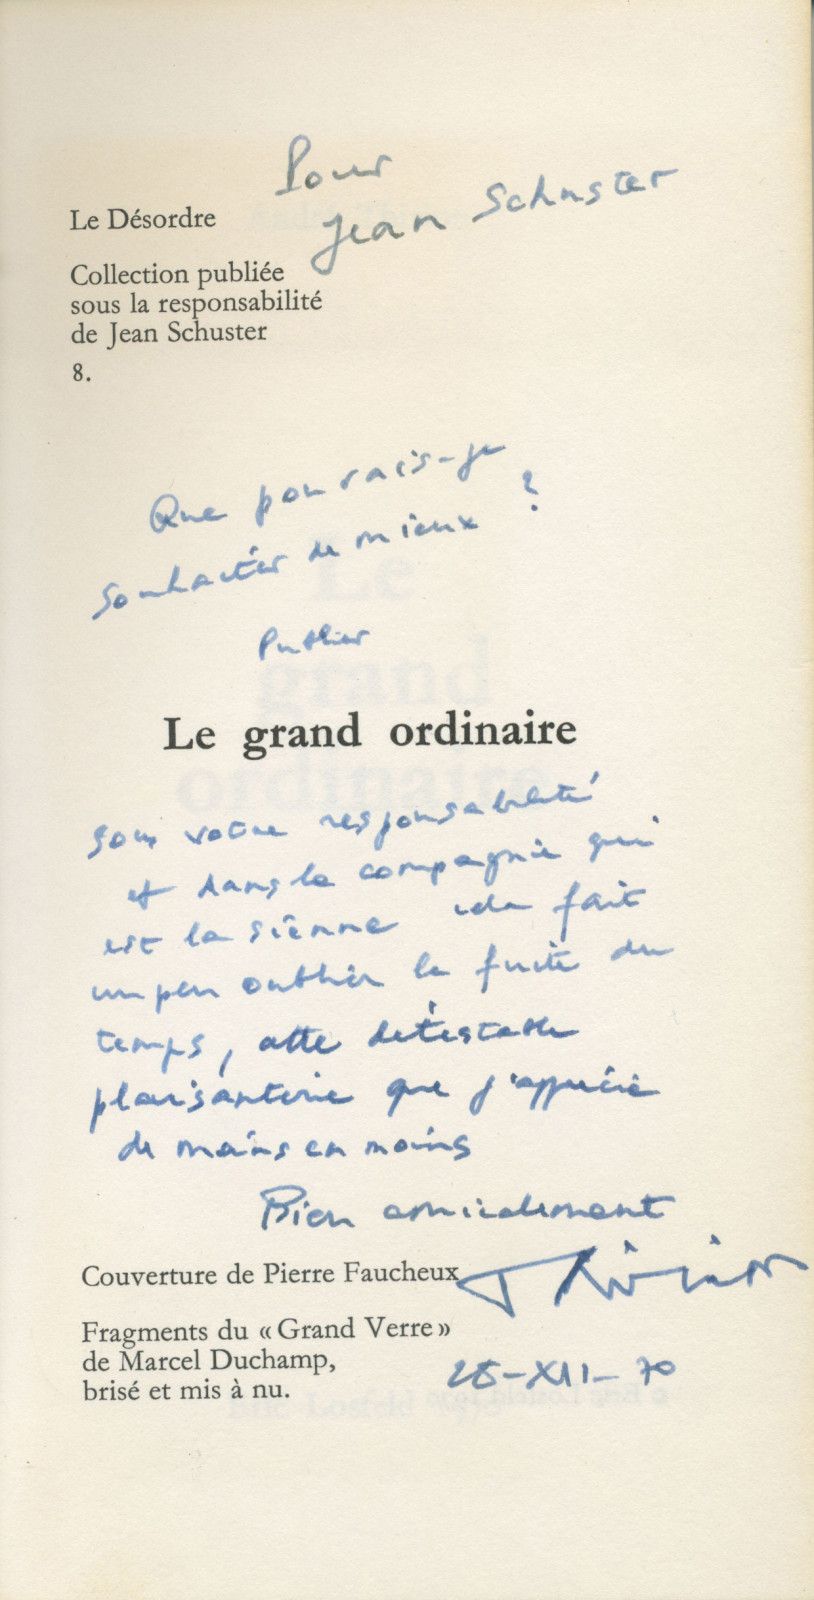 Pour
Jean Schuster
Le Désordre
Collection publiée
sous la responsabilité
de Jean Schuster
8.
Que pourrais-je
souhaiter de mieux ?
Publier
Le grand ordinaire
sous votre responsabilité
et dans la compagnie qui
est la sienne fait
un peu oublier la fuite du
temps, cette détestable
plaisanterie que j'apprécie
de moins en moins
Bien amicalement
Couverture de Pierre Faucheux
Thirion
Fragments du « Grand Verre »
de Marcel Duchamp,
brisé et mis à nu.
-XII-70